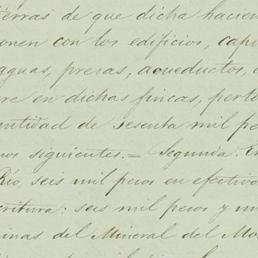 tierras de que dicha hacien
onen con los edificios, cap
aguas, presas, acueductos,
re en dichas fincas, perte
antidad de sesenta mil pe
nos siguientes.= Segunda:
Rio, seis mil pesos en efectivo
critura: seis mil pesos y
inas del Mineral del Mo